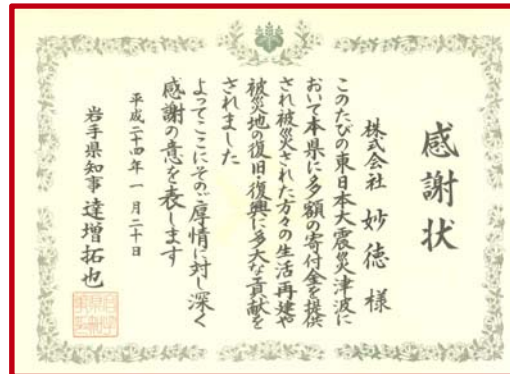 感謝状
株式会社 妙徳 様
このたびの東日本大震災津波に
おいて本県に多額の寄付金を提供
され被災された方々の生活再建や
被災地の復旧・復興に多大な貢献を
されました
よってここにそのご厚情に対し深く
感謝の意を表します
平成二十四年一月二十日
岩手県知事 達増拓也